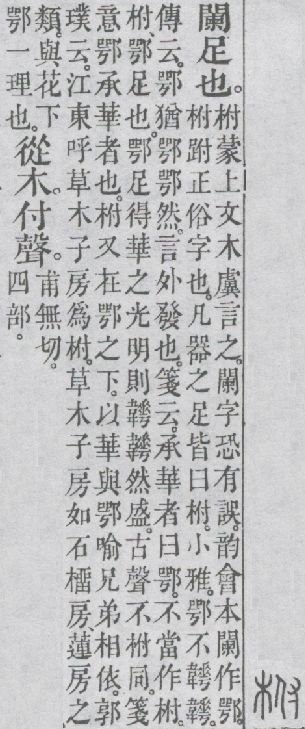 柎
闌足也。
柎蒙上文木虡言之。闌字恐有誤。韵會本闌作鄂。
柎跗正俗字也。凡器之足皆曰柎。小雅。鄂不韡韡。
傳云。鄂猶鄂鄂然。言外發也。箋云。承華者曰鄂。不當作柎。
柎、鄂足也。鄂足得華之光明則韡韡然盛。古聲不柎同。箋
意鄂承華者也。柎又在鄂之下。以華與鄂喻兄弟相依。郭
璞云。江東呼草木子房爲柎。草木子房如石橊房、蓮房之
類。與花下
鄂一理也。
從木。付聲。
甫無切。
四部。